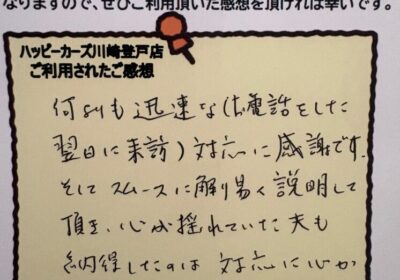 なりますので、ぜひご利用頂いた感想を頂ければ幸いです。
ハッピーカーズ川崎登戸店
ご利用されたご感想
何よりも迅速な(お電話をした
翌日に来訪)対応に感謝です。
そしてスムースに解り易く説明して
頂き、心が揺れていた夫も
納得したのは対応に心か